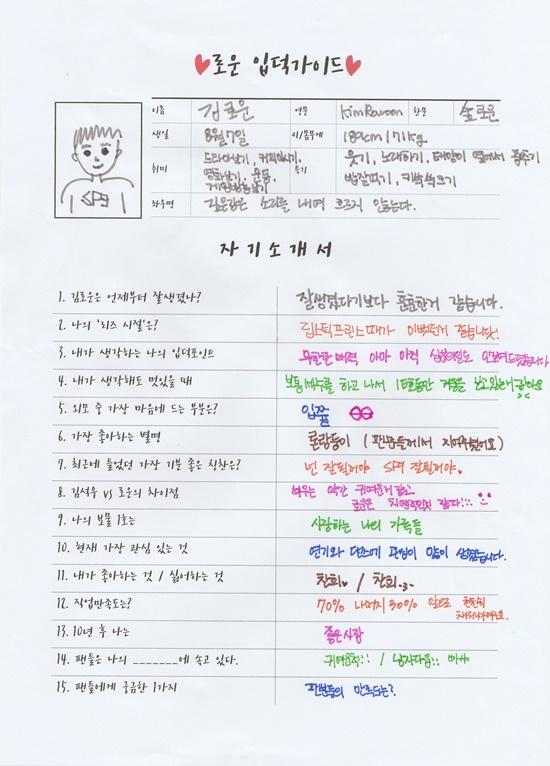 로운 입덕가이드
이름 김로운 영문 KimRowoon 한문 金로운
생일 8월 7일 키/몸무게 189cm / 71kg
취미 드라마보기, 커피마시기, 영화보기, 운동, 게임방송보기 특기 웃기, 노래하기, 태양이 옆에서 춤추기 밥잘먹기, 키 쑥쑥크기
좌우명 깊은강은 소리를 내며 흐르지 않는다.
자기소개서
1. 김로운은 언제부터 잘생겼나? 잘생겼다기보다 훈훈한거 같습니다.
2. 나의 '리즈 시절'은? 립스틱프린스때가 이뻤던거 같습니다!
3. 내가 생각하는 나의 입덕포인트 무한한 매력 아아 아직
4. 내가 생각해도 멋있을 때 보통 세수를 하고 나서 10초동안 거울을 보고
5. 외모 중 가장 마음에 드는 부분은? 입술
6. 가장 좋아하는 별명 로랑둥이 (팬분들께서 지어주셨어요)
7. 최근에 들었던 가장 기분 좋은 칭찬은? 넌 잘될거야 진짜 잘될거야
8. 김석우 vs 로운의 차이점 석우는 약간 귀여운거 같고 로운은 치명적인것 같다!!!
9. 나의 보물 1호는 사랑하는 나의 가족들
10. 현재 가장 관심 있는 것 연기와 댄스에 관심이 많이 생겼습니다.
11. 내가 좋아하는 것 / 싫어하는 것 찬희 / 찬희
12. 직업만족도는? 70% 나머지 30% 앞으로 천천히 채워나가려구요.
13. 10년 후 나는 좋은사람
14. 팬들은 나의 _______에 속고 있다. 귀여움 / 남자다움
15. 팬들에게 궁금한 1가지 팬분들의 만족도는?